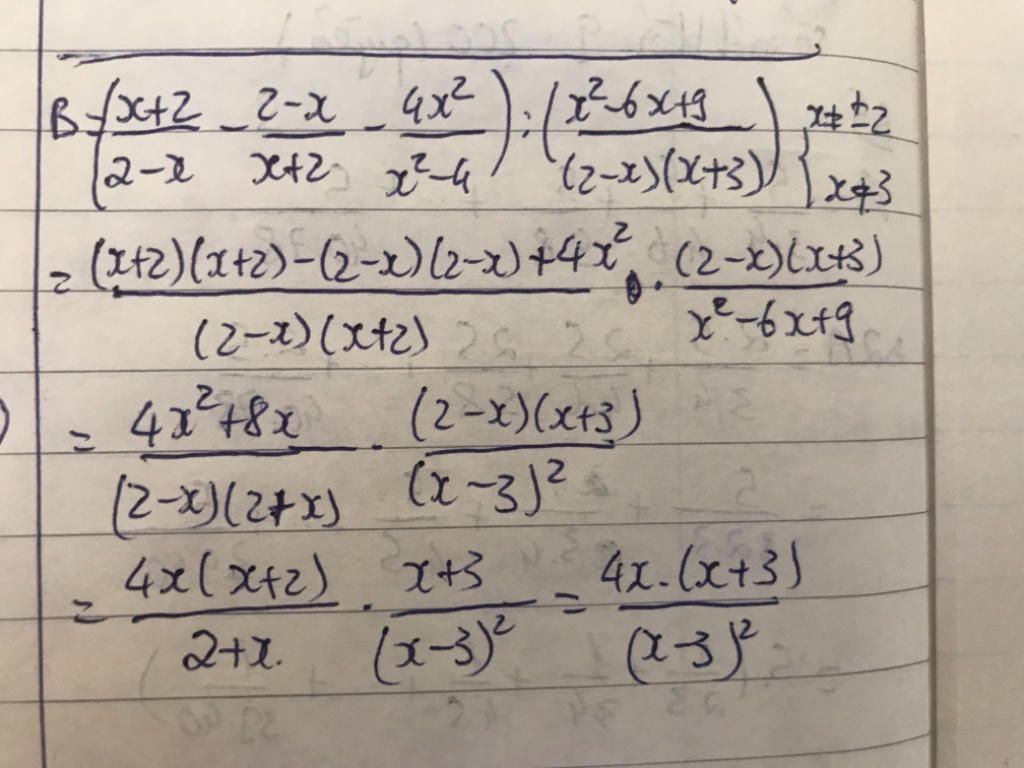 B=((x+2)/(2-x) - (2-x)/(x+2) - 4x²/(x²-4)) : ((x²-6x+9)/((2-x)(x+3))) { x≠±2
x≠3
= ((x+2)(x+2)-(2-x)(2-x)+4x²)/((2-x)(x+2)) · ((2-x)(x+3))/(x²-6x+9)
= (4x²+8x)/((2-x)(2+x)) · ((2-x)(x+3))/((x-3)²)
= (4x(x+2))/(2+x) · (x+3)/((x-3)²) = (4x.(x+3))/((x-3)²)